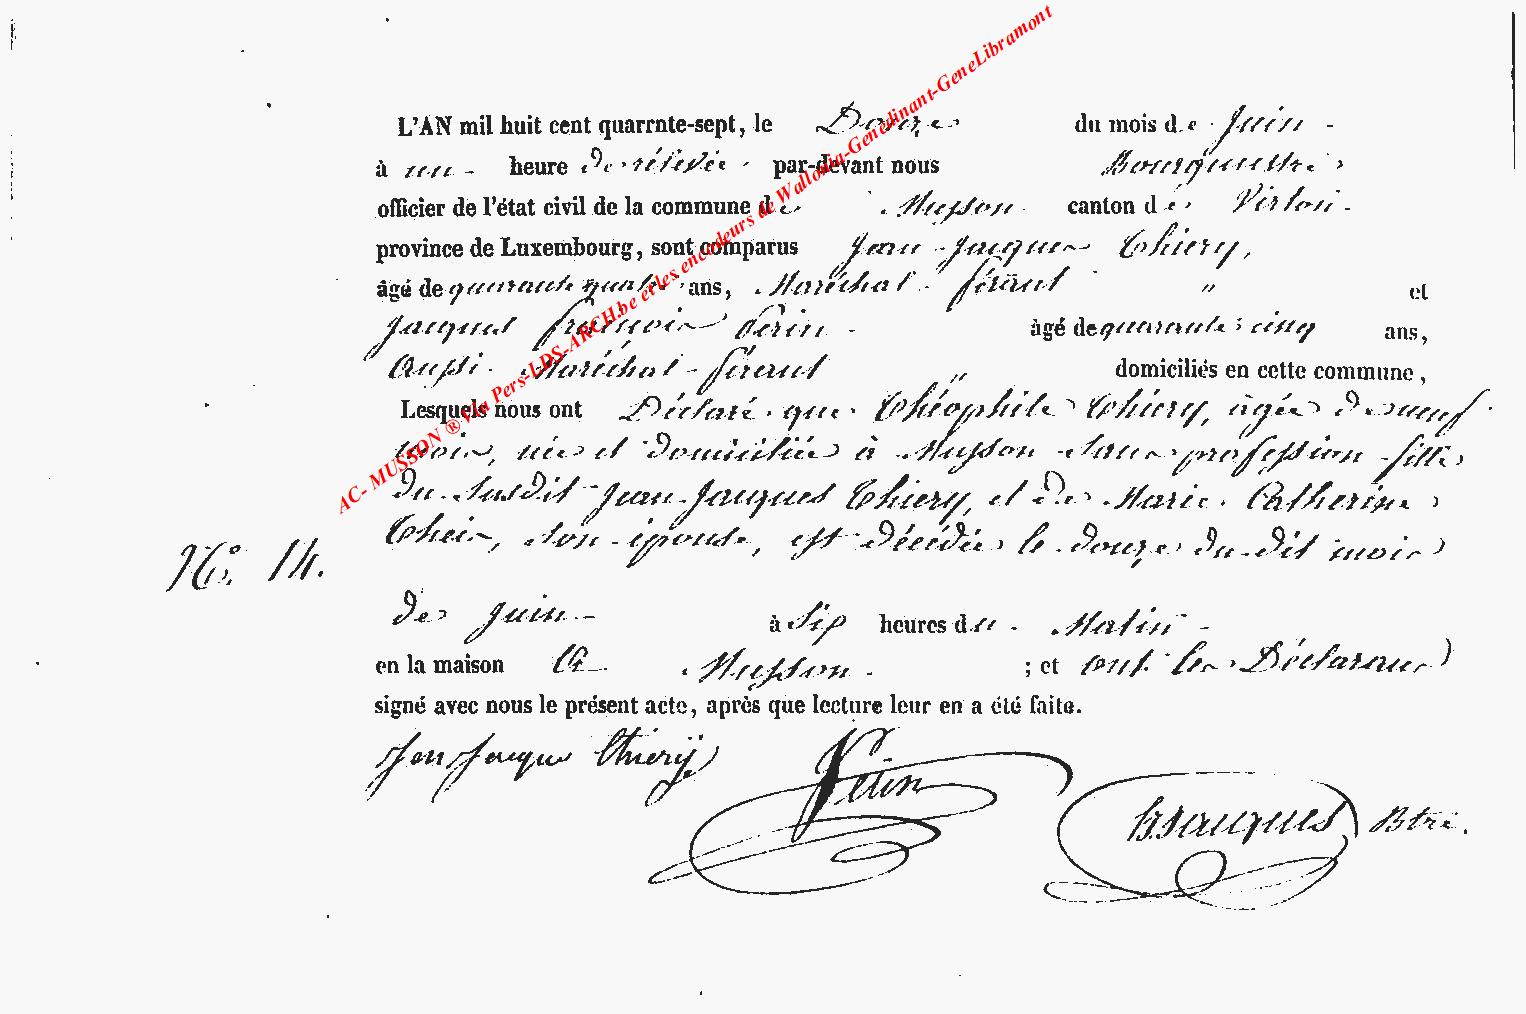 L'AN mil huit cent quarrnte-sept, le Douze du mois de Juin
à une heure de relevée par-devant nous Bourguestre
officier de l'état civil de la commune de Musson canton de Virton
province de Luxembourg, sont comparus Jean Jacques Thiery,
âgé de quarante quatre ans, Maréchal férant " et
Jacques françois Perin âgé de quarante cinq ans,
Aussi Maréchal férant " domiciliés en cette commune,
Lesquels nous ont Déclaré que Théophile Thiery, âgée de neuf
mois, née et domiciliée à Musson sans profession fille
du susdit Jean Jacques Thiery, et de Marie Catherine
Theis, son épouse, est décédée le douze du dit mois
No. 14.
de Juin à Six heures du Matin
en la maison à Musson ; et ont les Déclarans
signé avec nous le présent acte, après que lecture leur en a été faite.
Jean Jacque Thiery Perin Bte.
AC- MUSSON ® Via Pers-LDS-ARCH.be et les encodeurs de Wallonia-Genedinant-GeneLibramont